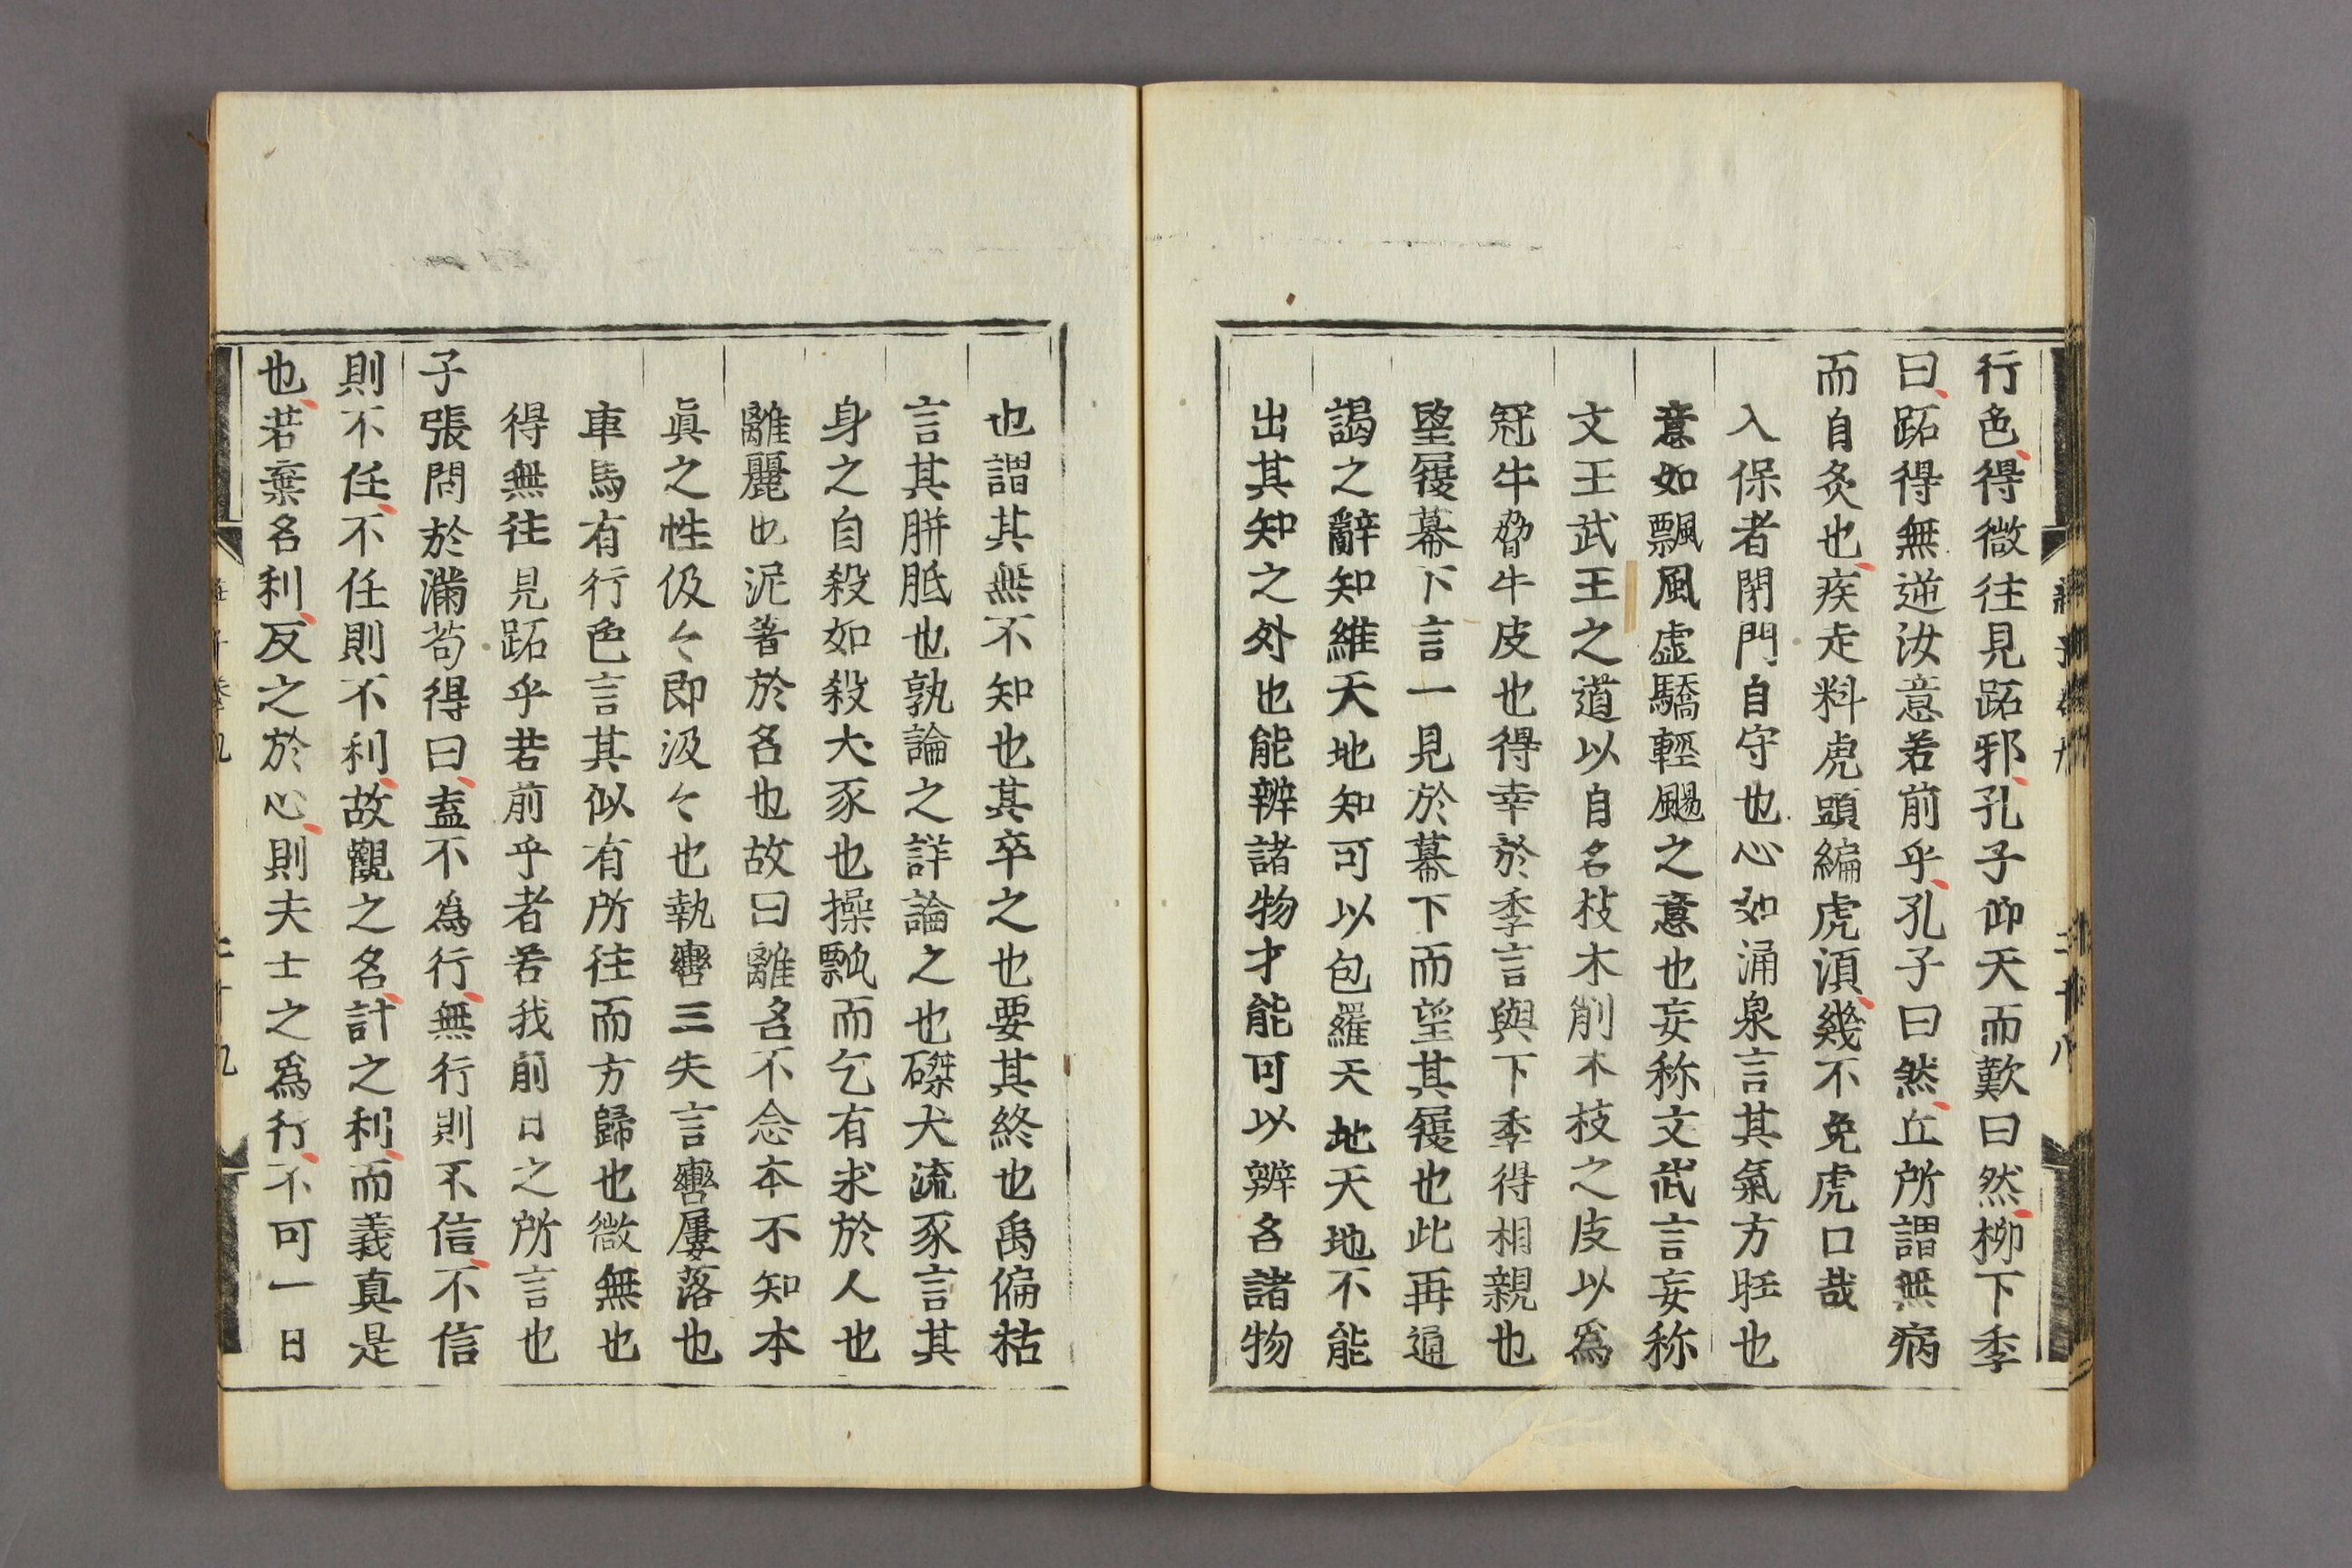 行色得微往見跖邪孔子仰天而歎曰然柳下季
曰跖得無逆汝意若前乎孔子曰然丘所謂無病
而自灸也疾走料虎頭編虎湏幾不免虎口哉
入保者閉門自守也心如涌泉言其氣方旺也
意如飄風虛驕輕颺之意也妄称文武言妄称
文王武王之道以自名枝木削木枝之皮以爲
冠牛脅牛皮也得幸於季言與下季得相親也
望履幕下言一見於幕下而望其履也此再通
謁之辭知維天地知可以包羅天地天地不能
出其知之外也能辨諸物才能可以辨名諸物
也謂其無不知也其卒之也要其終也禹偏枯
言其胼胝也孰論之詳論之也磔犬流豕言其
身之自殺如殺犬豕也操瓢而乞有求於人也
離麗也泥著於名也故曰離名不念本不知本
眞之性伋々即汲々也執轡三失言轡屢落也
車馬有行色言其似有所往而方歸也微無也
得無往見跖乎若前乎者若我前日之所言也
子張問於滿苟得曰盍不爲行無行則不信不信
則不任不任則不利故觀之名計之利而義真是
也若棄名利反之於心則夫士之爲行不可一日